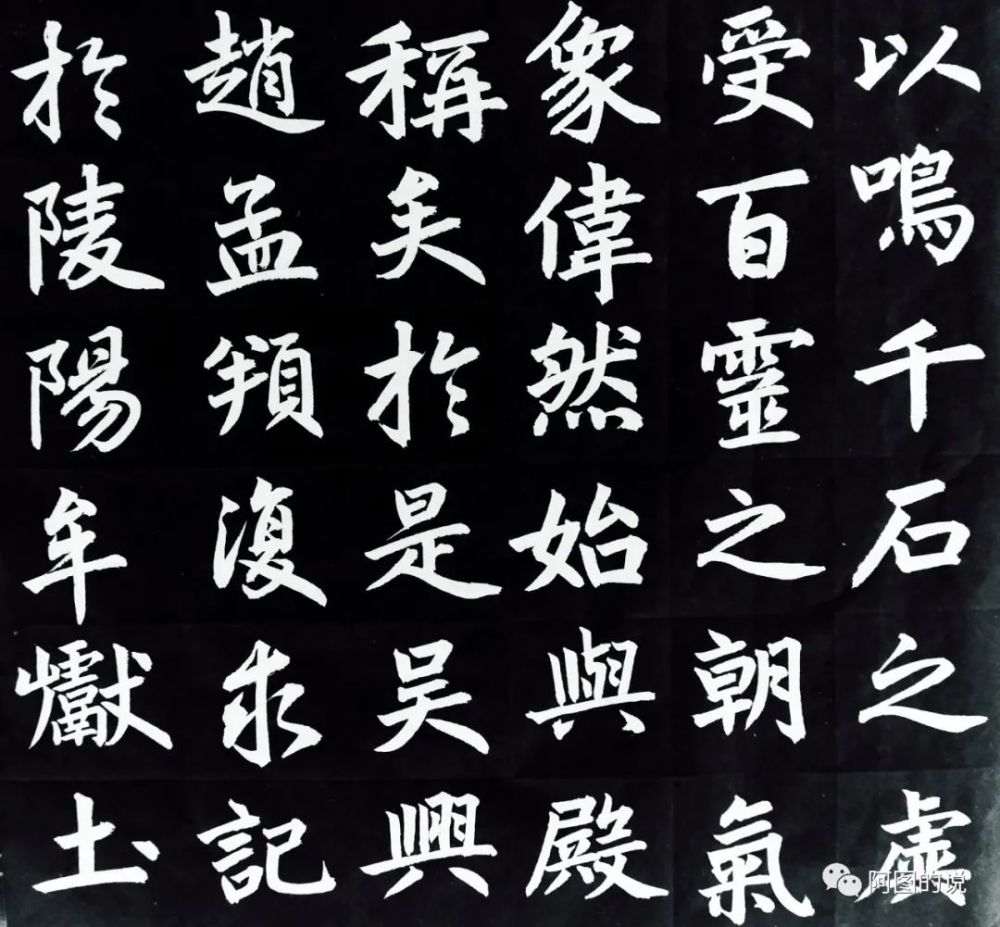 以鳴千石之虡
受百靈之朝氣
象偉然始與殿
稱矣於是吳興
趙孟頫復求記
於陵陽牟巘土
阿图的说